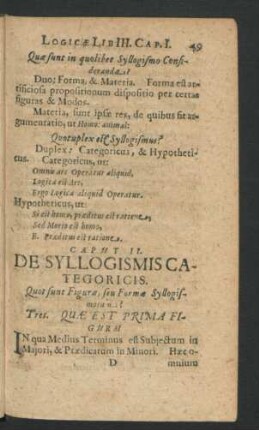 LOGICÆ LIB III. CAP. I. 49
Quæ sunt in quolibet Syllogismo Consi-
derandæ?
Duo: Forma, & Materia. Forma est ar-
tificiosa propositionum dispositio per certas
figuras & Modos.
Materia, sunt ipsæ res, de quibus fit ar-
gumentatio, ut Homo: animal:
Quotuplex est Syllogismus?
Duplex: Categoricus, & Hypotheti-
cus. Categoricus, ut:
Omnis ars Operatur aliquid,
Logica est Ars,
Ergo Logica aliquid Operatur.
Hypotheticus, ut:
Si est homo, præditus est ratione,
Sed Marta est homo,
E. Præditus est ratione.
CAPUT II.
DE SYLLOGISMIS CA-
TEGORICIS.
Quot sunt Figuræ, seu Formæ Syllogis-
Tres. QUÆ EST PRIMA FI-
GURA
IN qua Medius Terminus est Subjectum in
Majori, & Prædicatum in Minori. Hæc o-
D mnium